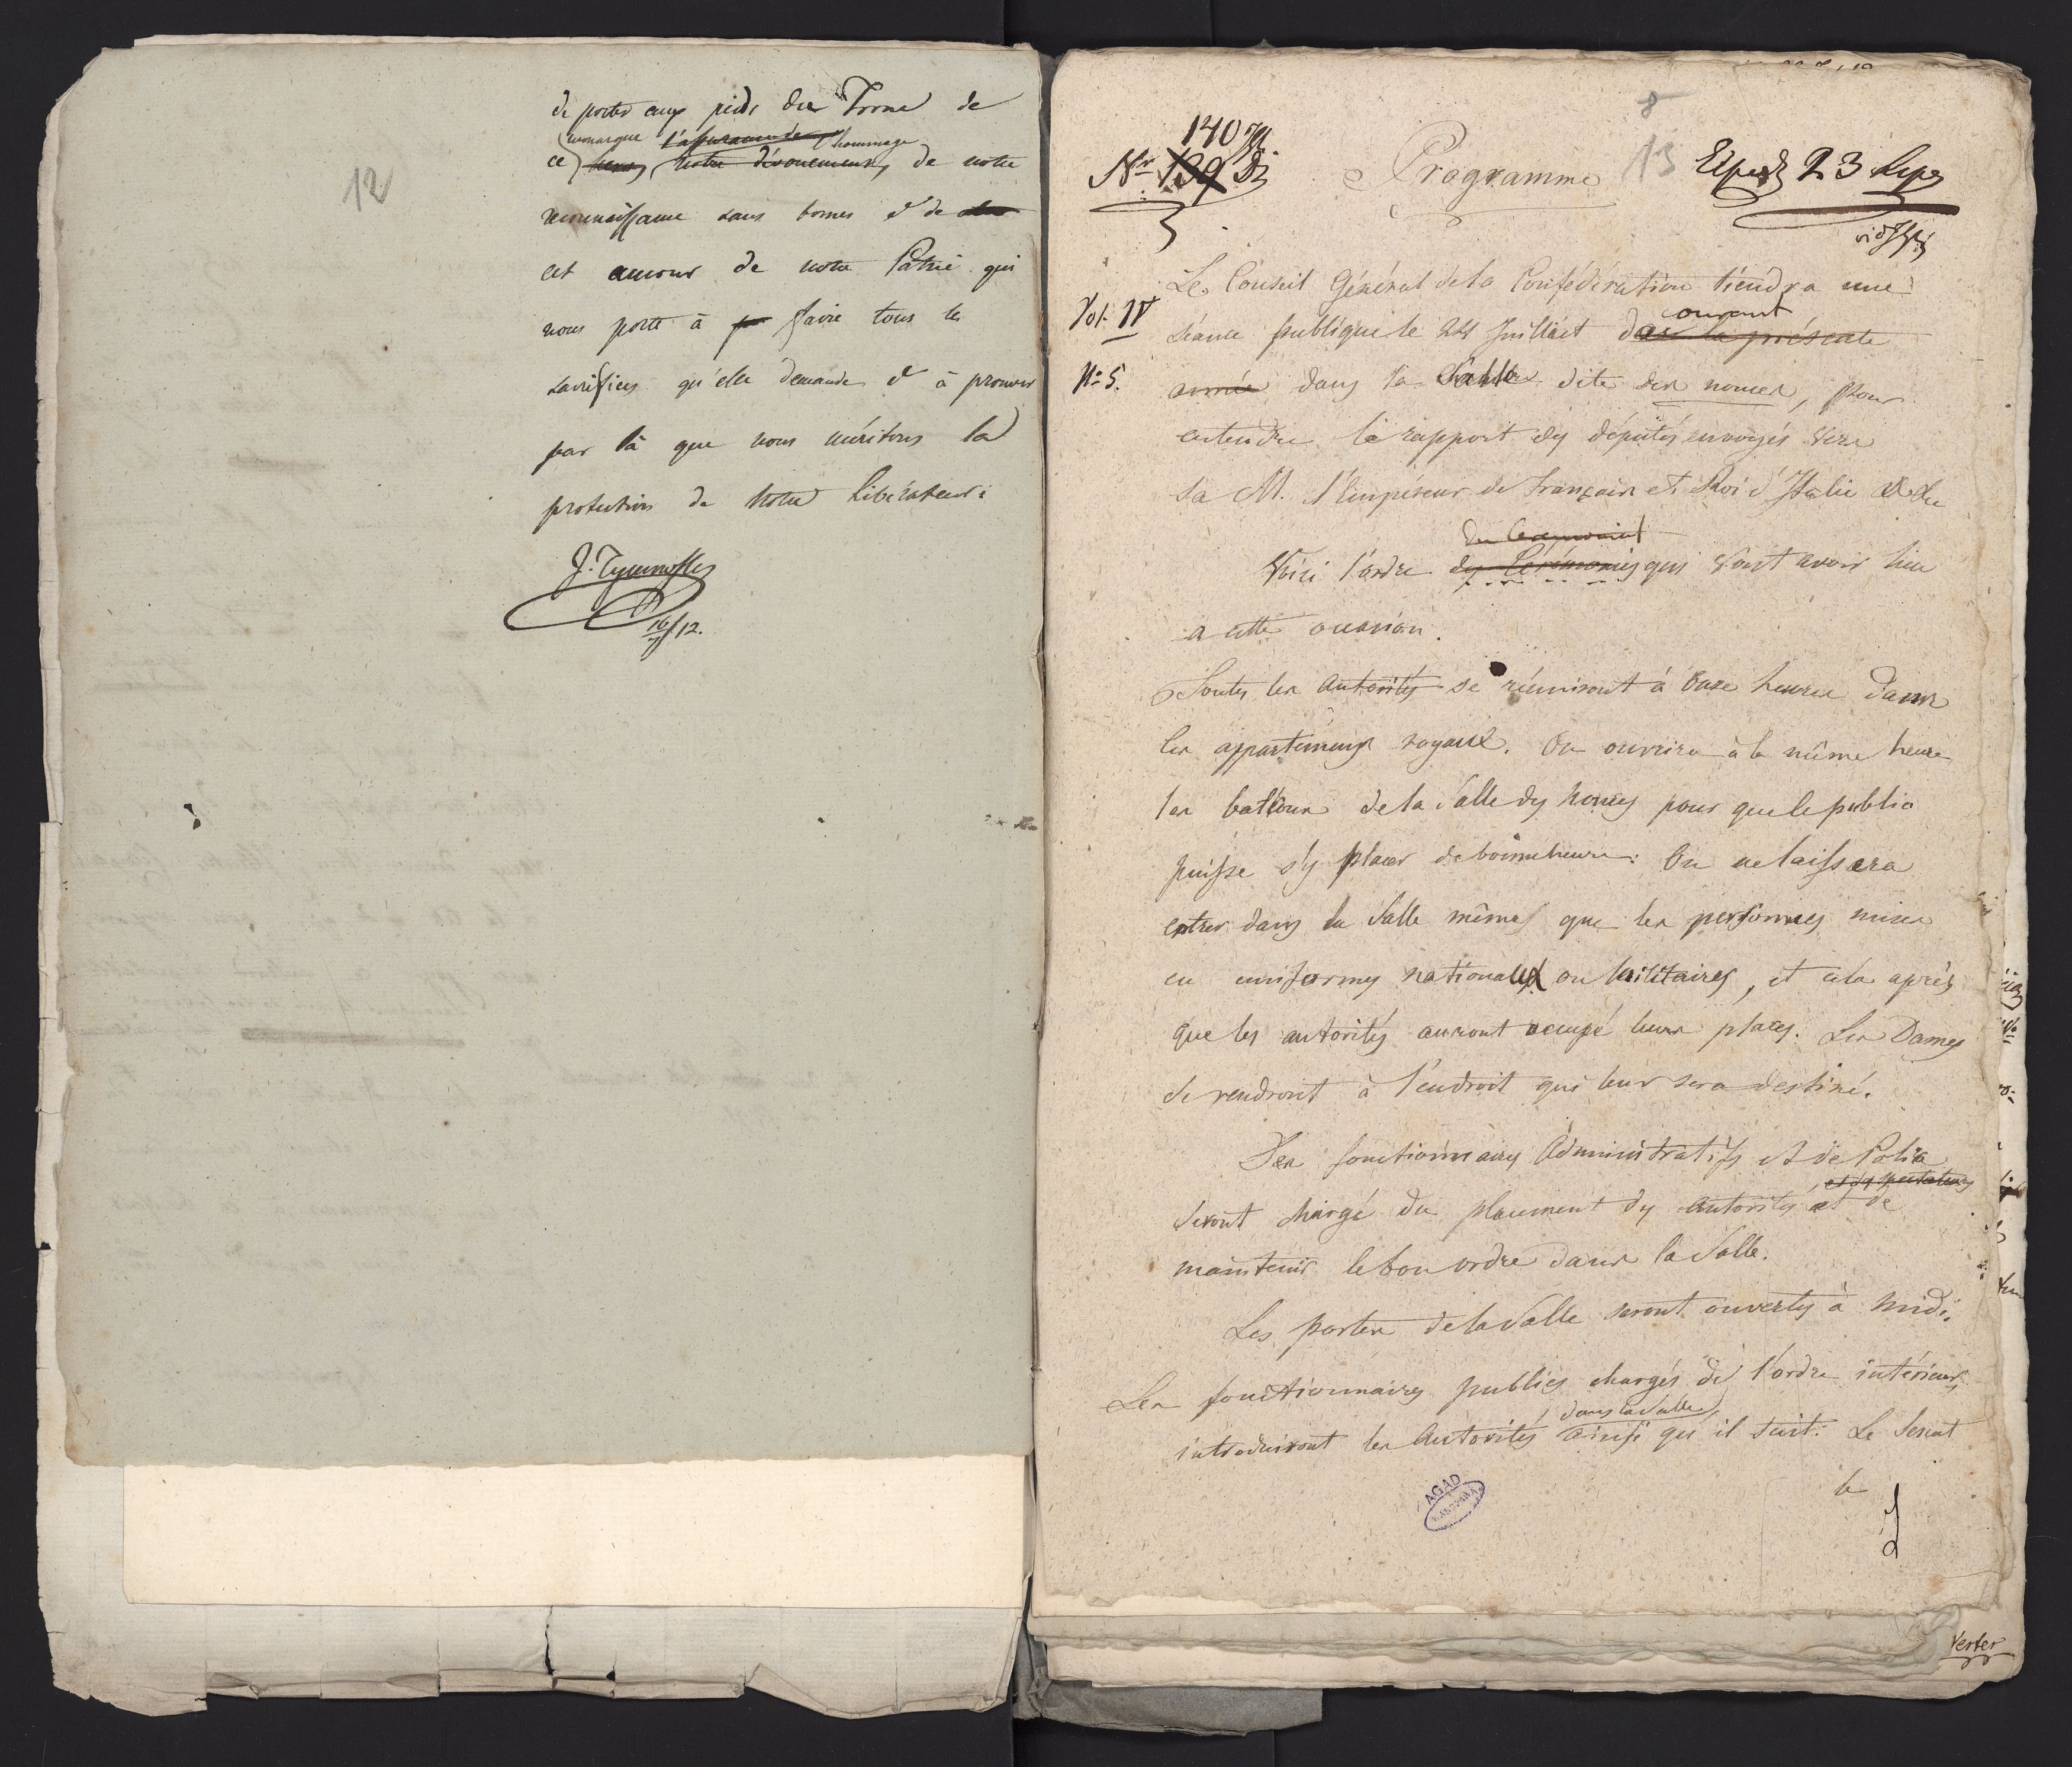 12
de porter aux pieds du Trone de
monarque l'assurance de l'hommage
ce heros notre dévouement, de notre
reconnaissance sans bornes & de
cet amour de notre Patrie qui
nous porte à faire tous les
sacrifices qu'elle demande & à prouver
par là que nous méritons la
protection de Notre Libérateur.
16/7 12.
8
140
Nr 139
Programme
13
23
Vol. IV
No 5.
Le Conseil Général de la Confédération tiendra une
courant
séance publique le 24 Juillet de la présente
année dans la Salle dite des nonces, pour
entendre le rapport des députés envoyés vers
Sa M. l'Empereur de Français et Roi d'Italie
du Ceremonial
Voici l'ordre des Cérémonies qui vont avoir lieu
a cette occasion.
Toutes les Autorités se réuniront à Onze heures dans
les appartemens royaux. On ouvrira à la même heure
les balcons de la Salle des nonces pour que le public
puisse s'y placer de bonne heure: On ne laissera
entrer dans la Salle même que les personnes mises
en uniformes nationaux ou militaires, et cela après
que les autorités auront occupé leurs places. Les Dames
se rendront à l'endroit qui leur sera destiné.
Des fonctionnaires Administratifs et de Police
et des spectateurs
seront chargé du placement des autorités et de
maintenir le bon ordre dans la Salle.
Les portes de la Salle seront ouvertes à midi.
Les fonctionnaires publics chargés de l'ordre intérieur,
dans la salle
introduiront les Autorités ainsi qu'il suit: Le Senat
le
AGAD
WARSZAWA
Verter